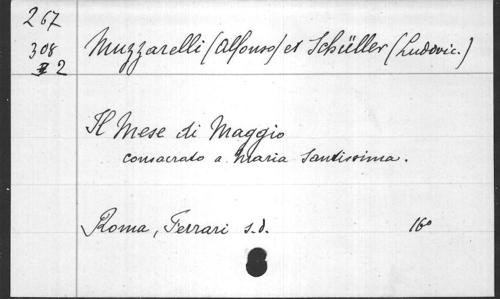 267
308
2
Muzzarelli (Alfonso) et Schüller (Ludovic.)
Il Mese di Maggio
consacrato a Maria Santissima.
Roma, Ferrari s.d. 16°